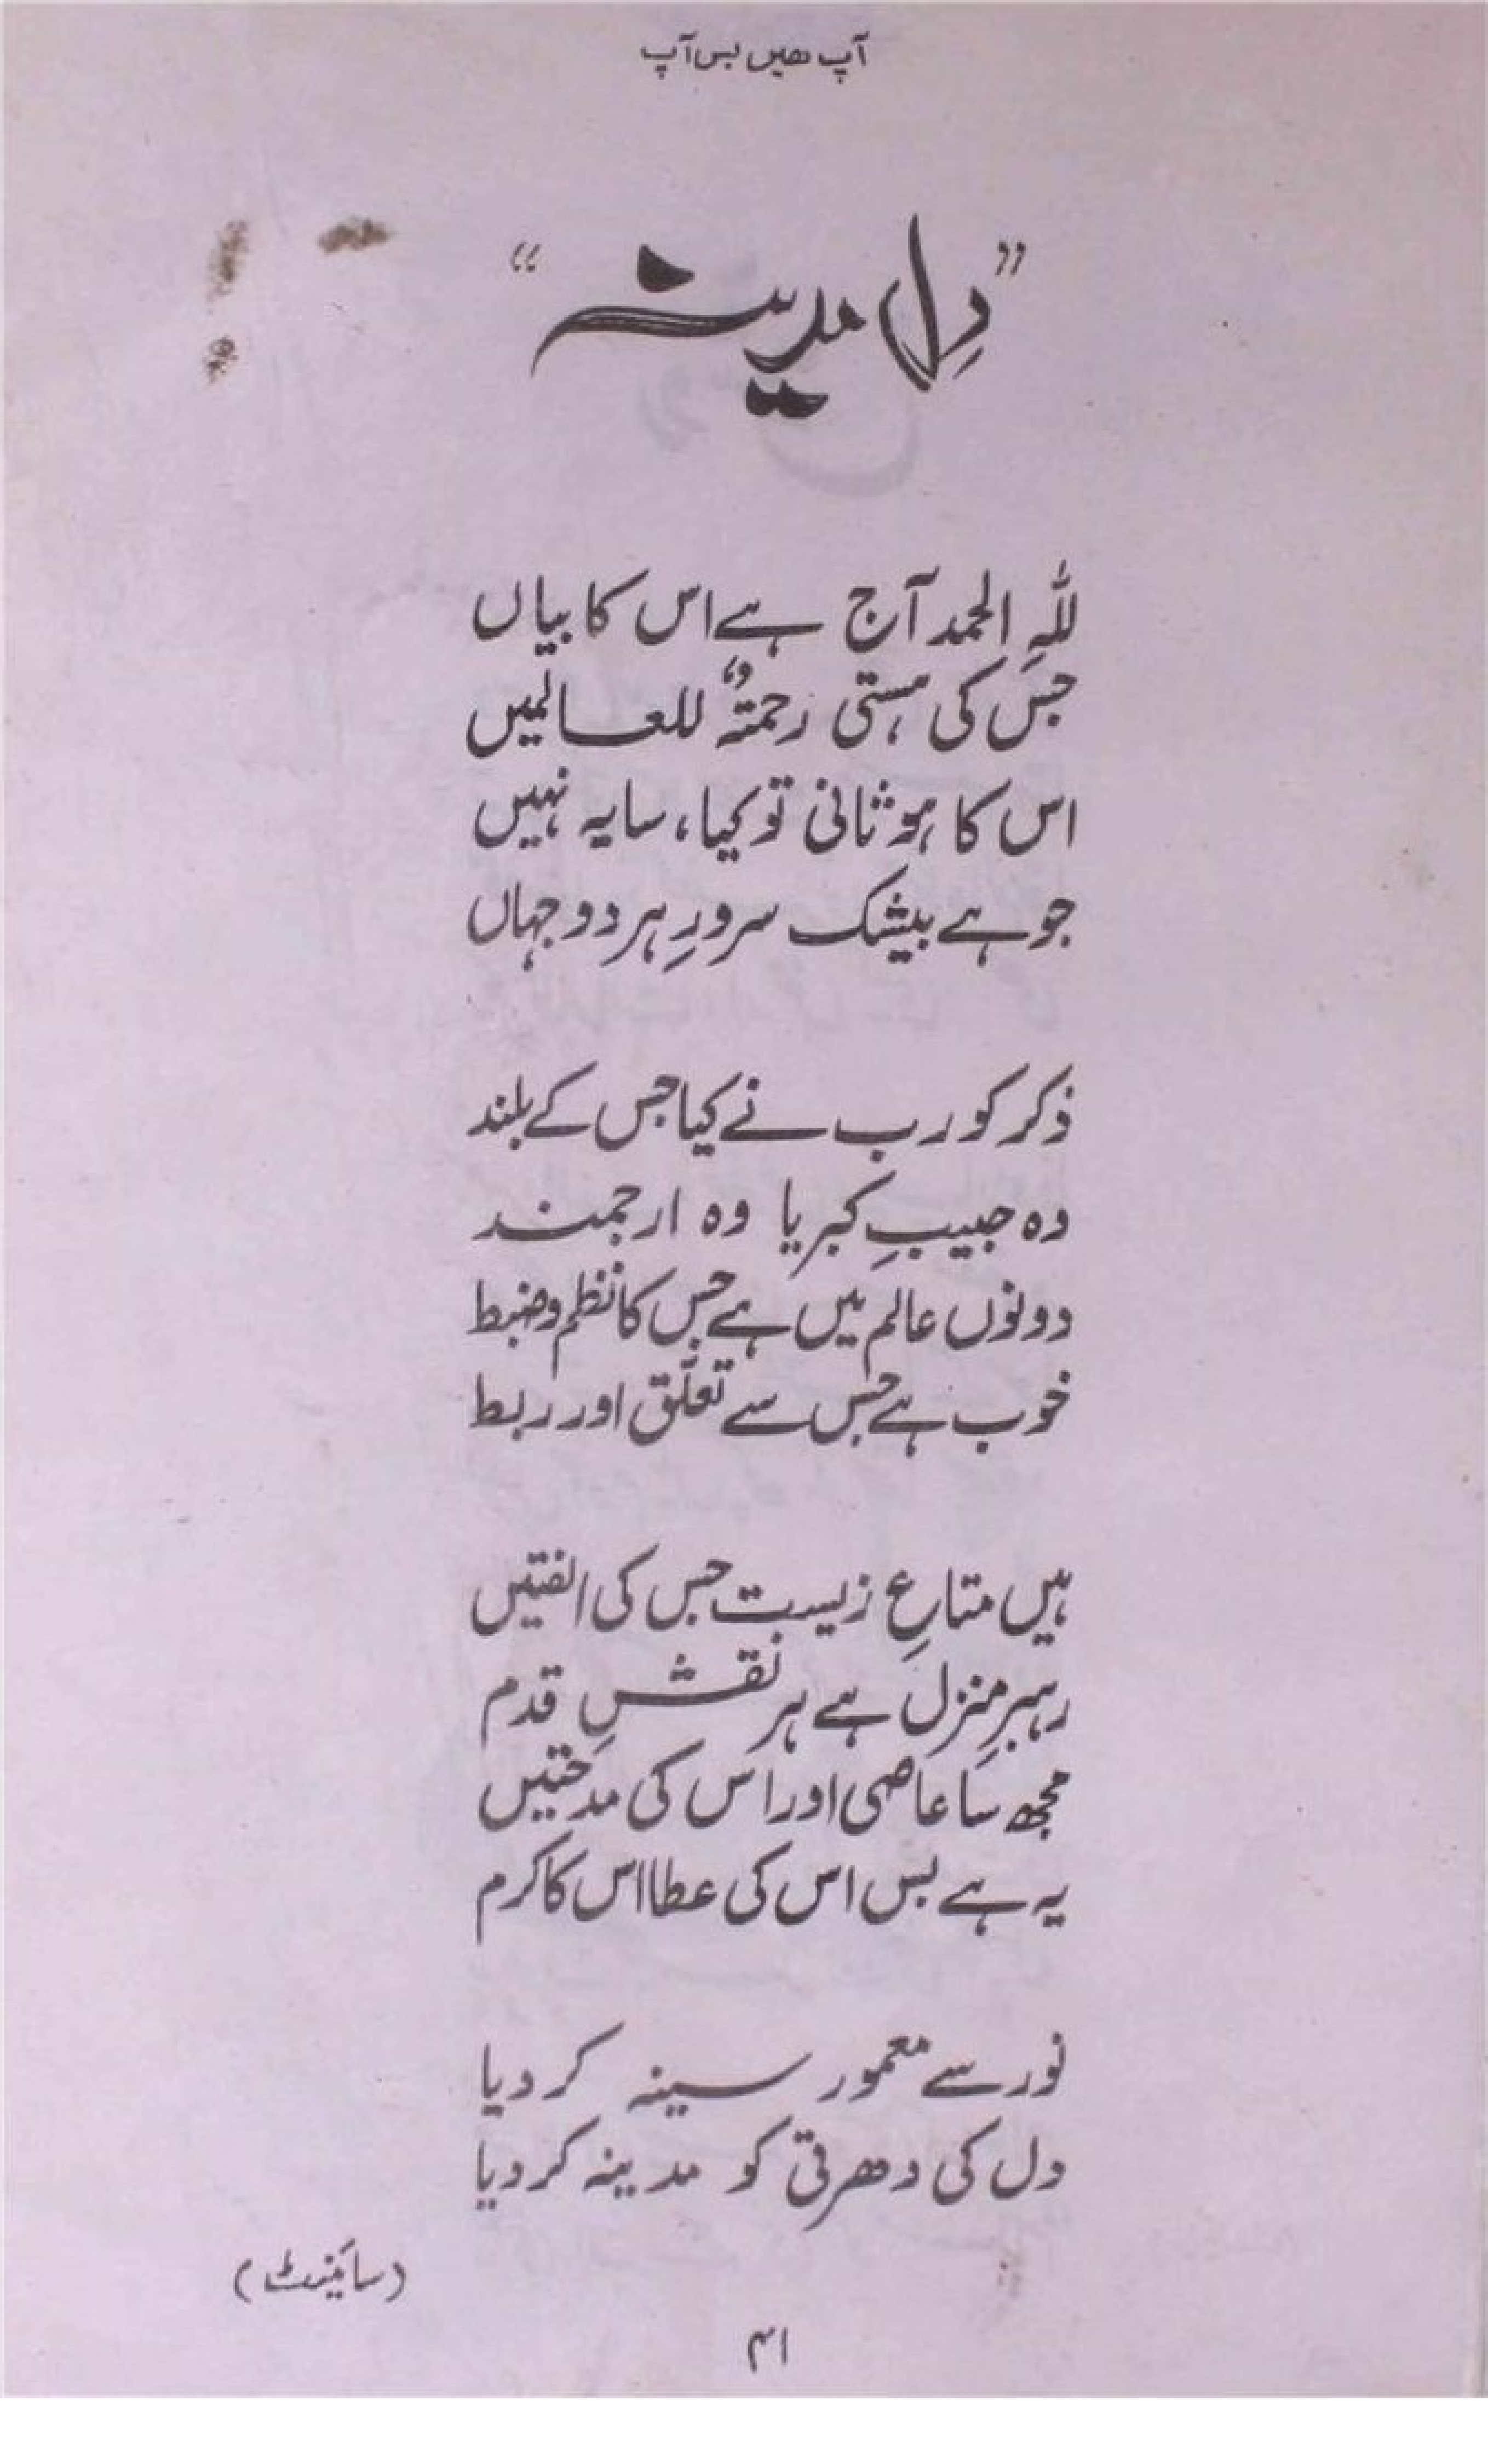 آپ ھیں بس آپ
”دِل مدینہ“
للّٰہِ الحمد آج ہے اس کا بیاں
جس کی ہستی رحمتہٌ للعالمیں
اس کا ہو ثانی تو کیا، سایہ نہیں
جو ہے بیشک سرورِ ہر دو جہاں
ذکر کو رب نے کیا جس کے بلند
وہ حبیبِ کبریا وہ ارجمند
دونوں عالم میں ہے جس کا نظم و ضبط
خوب ہے جس سے تعلّق اور ربط
ہیں متاعِ زیست جس کی الفتیں
رہبرِ منزل ہے ہر نقشِ قدم
مجھ سا عاصی اور اس کی مدحتیں
یہ ہے بس اس کی عطا اس کا کرم
نور سے معمور سینہ کر دیا
دل کی دھرتی کو مدینہ کر دیا
(سانیٹ)
۴۱